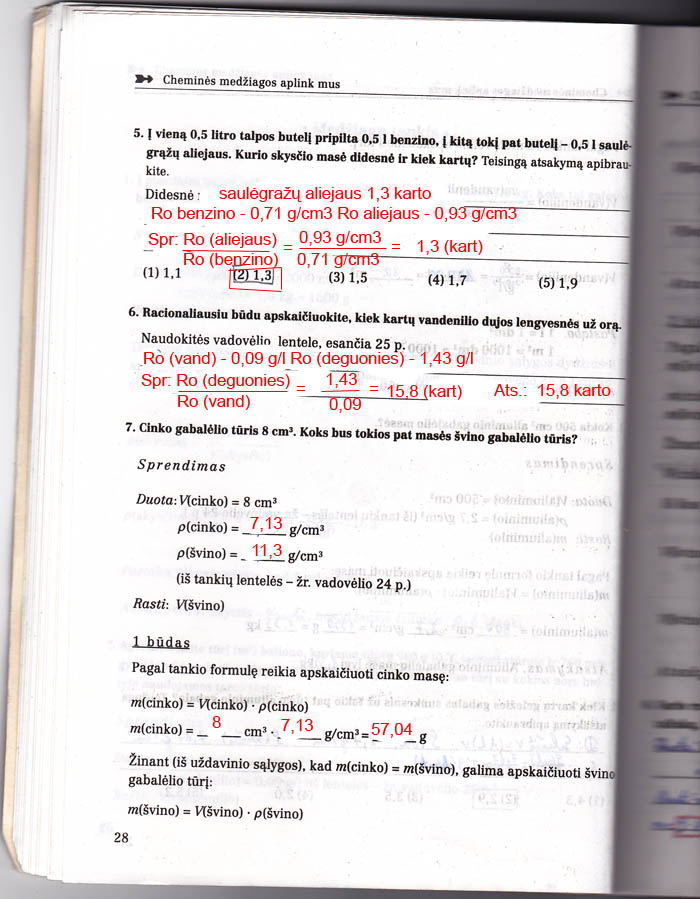 Cheminės medžiagos aplink mus
5. Į vieną 0,5 litro talpos butelį pripilta 0,5 l benzino, į kitą tokį pat butelį – 0,5 l saulė-
grąžų aliejaus. Kurio skysčio masė didesnė ir kiek kartų? Teisingą atsakymą apibrau-
kite.
Didesnė : saulėgražų aliejaus 1,3 karto
Ro benzino - 0,71 g/cm3 Ro aliejaus - 0,93 g/cm3
Spr: Ro (aliejaus) = 0,93 g/cm3 = 1,3 (kart)
Ro (benzino) 0,71 g/cm3
(1) 1,1 (2) 1,3 (3) 1,5 (4) 1,7 (5) 1,9
6. Racionaliausiu būdu apskaičiuokite, kiek kartų vandenilio dujos lengvesnės už orą.
Naudokitės vadovėlio lentele, esančia 25 p.
Ro (vand) - 0,09 g/l Ro (deguonies) - 1,43 g/l
Spr: Ro (deguonies) = 1,43 = 15,8 (kart) Ats.: 15,8 karto
Ro (vand) 0,09
7. Cinko gabalėlio tūris 8 cm³. Koks bus tokios pat masės švino gabalėlio tūris?
Sprendimas
Duota: V(cinko) = 8 cm³
ρ(cinko) = 7,13 g/cm³
ρ(švino) = 11,3 g/cm³
(iš tankių lentelės – žr. vadovėlio 24 p.)
Rasti: V(švino)
1 būdas
Pagal tankio formulę reikia apskaičiuoti cinko masę:
m(cinko) = V(cinko) · ρ(cinko)
m(cinko) = 8 cm³ · 7,13 g/cm³ = 57,04 g
Žinant (iš uždavinio sąlygos), kad m(cinko) = m(švino), galima apskaičiuoti švino
gabalėlio tūrį:
m(švino) = V(švino) · ρ(švino)
28